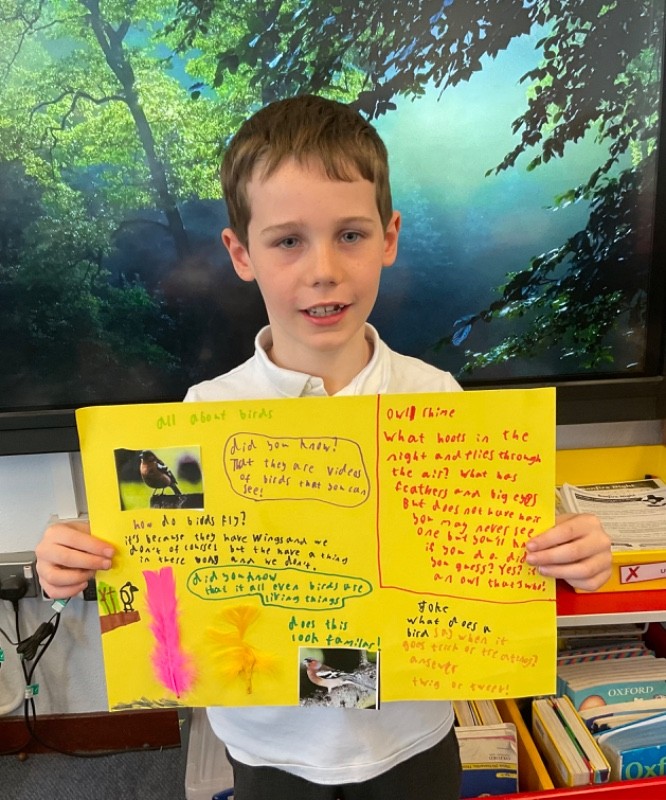 all about birds
did you know?
That they are videos
of birds that you can
see!
how do birds fly?
it's because they have wings and we
don't of courses but the have a thing
in these body and we don't.
did you know
that it all even birds are
living things
does this
look familar!
owll rhime
what hoots in the
night and flies through
the air? what has
feathers and big eyes
But does not have hair
you may never see
one but you'll
if you do. did
you guess? Yes?
an owl that's
Joke
what does a
bird say when it
goes trick or treating?
answer
twig or tweet!
OXFORD
Oxf